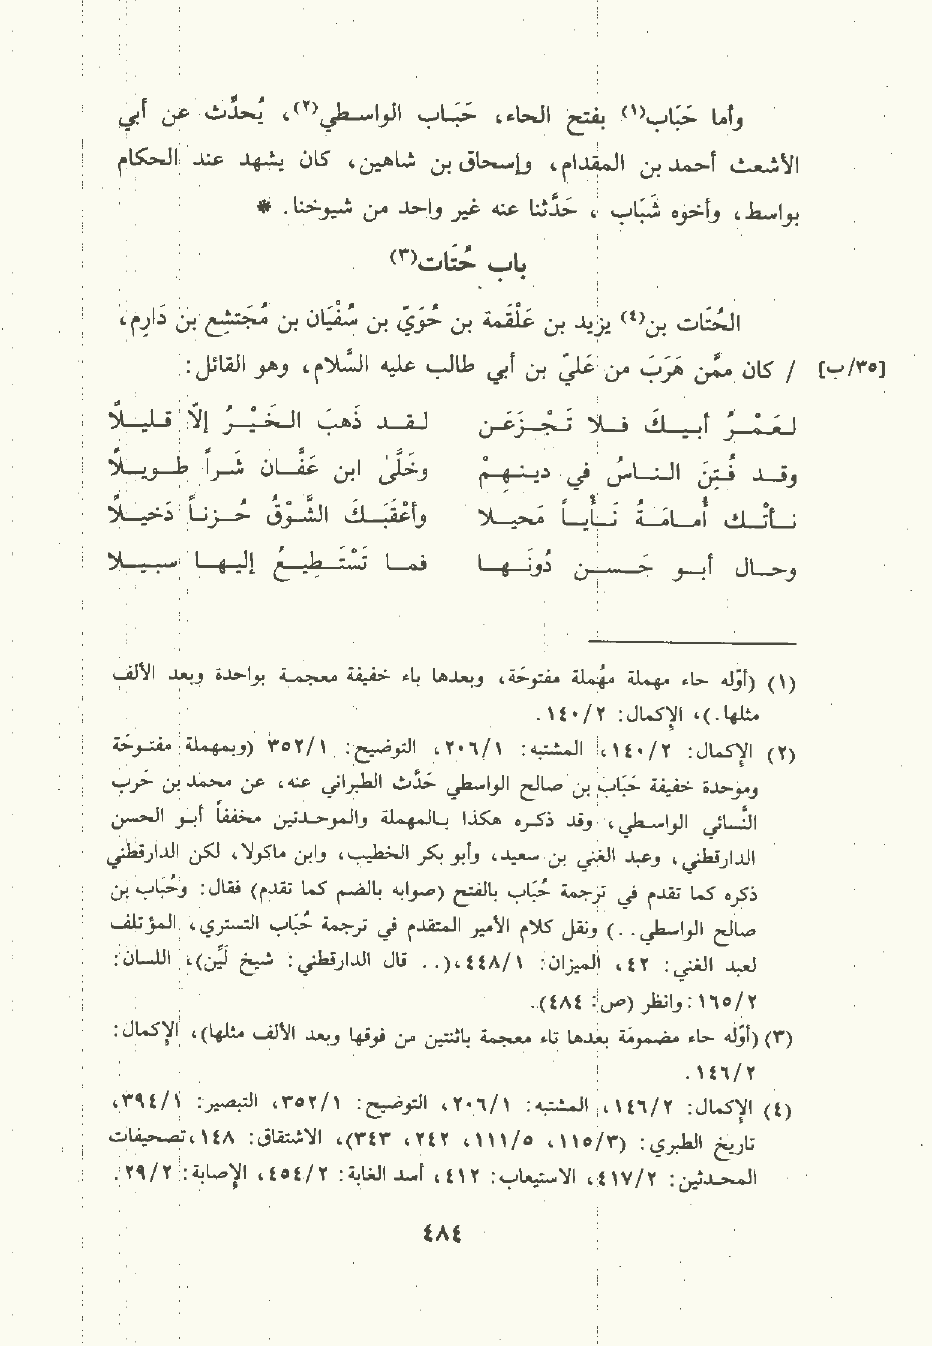 وأما حَبَاب(١) بفتح الحاء، حَبَاب الواسطي(٢)، يُحدِّث عن أبي
الأشعث أحمد بن المقدام، وإسحاق بن شاهين، كان يشهد عند الحكام
بواسط، وأخوه شَبَاب، حَدَّثنا عنه غير واحد من شيوخنا. *
باب حُتَات(٣)
الحُتَات بن(٤) يزيد بن عَلْقَمة بن حُوَيّ بن سُفْيَان بن مُجَتشِع بن دَارِم،
[٣٥/ب] / كان ممَّن هَرَبَ من عَليّ بن أبي طالب عليه السَّلام، وهو القائل:
لـعَـمْـرُ أبـيـك فـلا تَـجْـزَعـن لـقـد ذهبَ الـخَـيْـرُ إلّا قـليـلاً
وقـد فُـتِنَ الـنـاسُ في ديـنـهِـمْ وخَلَّى ابن عَـفَّـان شَـراً طـويـلاً
نـأتْـك أُمـامَـةُ نَـأيـاً مَحيـلا وأعْقَبَـكَ الشَّوْقُ حُـزنـاً دَخيـلاً
وحـال أبـو حَـسـن دُونَـهـا فمـا تَسْتَطِيـعُ إليـهـا سبيـلا
(١) (أوّله حاء مهملة مُهملة مفتوحَة، وبعدها باء خفيفة معجمة بواحدة وبعد الألف
مثلها.)، الإكمال: ١٤٠/٢.
(٢) الإكمال: ١٤٠/٢، المشتبه: ٢٠٦/١، التوضيح: ٣٥٢/١ (وبمهملة مفتوحَة
وموحدة خفيفة حَبَاب بن صالح الواسطي حَدَّث الطبراني عنه، عن محمد بن حَرب
النَّسائي الواسطي، وقد ذكره هكذا بالمهملة والموحدتين مخففاً أبو الحسن
الدارقطني، وعبد الغني بن سعيد، وأبو بكر الخطيب، وابن ماكولا، لكن الدارقطني
ذكره كما تقدم في ترجمة حُبَاب بالفتح (صوابه بالضم كما تقدم) فقال: وحُبَاب بن
صالح الواسطي..) ونقل كلام الأمير المتقدم في ترجمة حُبَاب التستري، المؤتلف
لعبد الغني: ٤٢، الميزان: ٤٤٨/١،(.. قال الدارقطني: شيخ لَيِّن)، اللسان:
١٦٥/٢: وانظر (ص: ٤٨٤).
(٣) (أوّله حاء مضمومَة بعدها تاء معجمة باثنتين من فوقها وبعد الألف مثلها)، الإكمال:
١٤٦/٢.
(٤) الإكمال: ١٤٦/٢، المشتبه: ٢٠٦/١، التوضيح: ٣٥٢/١، التبصير: ٣٩٤/١،
تاريخ الطبري: (١١٥/٣، ١١١/٥، ٢٤٢، ٣٤٣)، الاشتقاق: ١٤٨،تصحيفات
المحدثين: ٤١٧/٢، الاستيعاب: ٤١٢، أسد الغابة: ٤٥٤/٢، الإصابة: ٢٩/٢.
٤٨٤